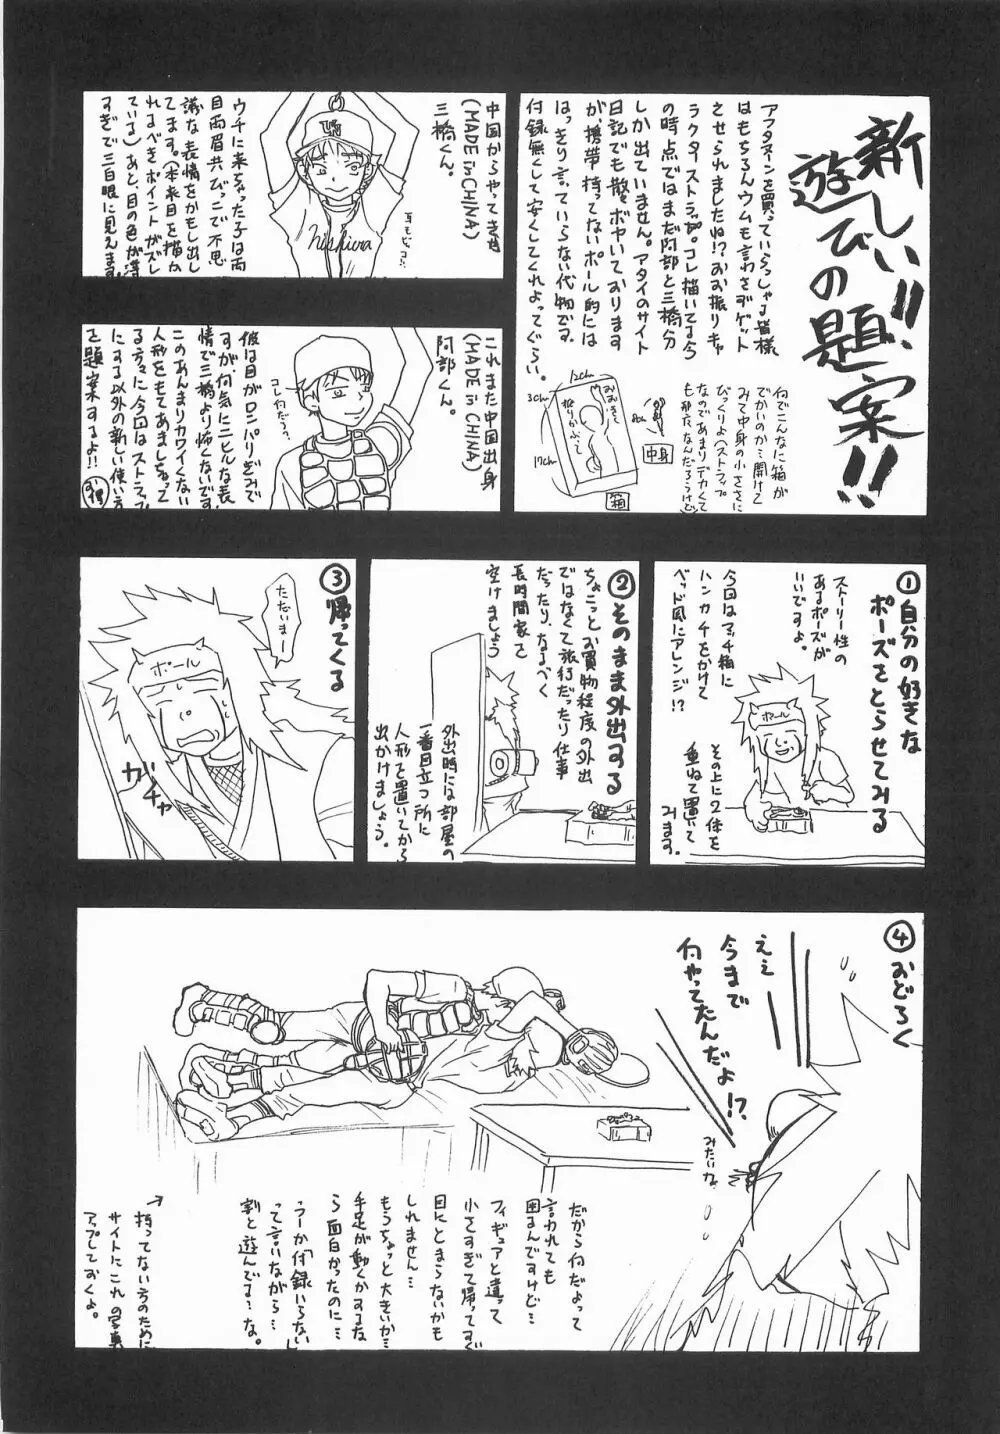 新しい!!
遊びの題案!!
アフタヌーンを買っていらっしゃる皆様
はもちろんウムも言わさずゲット
させられましたね!?おお振りキャ
ラクターストラップ。コレ描いてる今
の時点ではまだ阿部と三橋分
しか出ていません。アタイのサイト
日記でも散々ボヤいておりますが
が、携帯持ってないポール的には
はっきり言っていらない代物です。
付録無くして安くしてくれよってぐらい。
何でこんなに箱が
でかいのか…開けて
みて中身の小ささに
びっくりよ(ストラップ
なのであまりデカくて
も邪魔なんだろうけど)
12cm
3cm
17cm
おおきく
振りかぶって
8cm
中身
箱
中国からやってきた
(MADE in CHINA)
三橋くん。
Nishiura
ウチに来ちゃった子は両
目両眉共びっこで不思
議な表情をかもし出し
てます。(本来目を描か
れるべきポイントがズレ
ている)あと、目の色が薄
すぎで三白眼に見えます。
これまた中国出身
(MADE in CHINA)
阿部くん。
コレ何だろう?
彼は目がロンパリぎみで
すが、何気にニヒルな表
情で三橋より怖くないです
このあんまりカワイくない
人形をもてあましちゃって
る方々に今回はストラップ
にする以外の新しい使い方
を題案するよ!!
①自分の好きな
ポーズをとらせてみる
ストーリー性の
あるポーズが
いいですよ。
今回はマッチ箱に
ハンカチをかけて
ベッド風にアレンジ!?
ポール
その上に2体を
重ねて置いて
みます。
②そのまま外出する
ちょこっとお買物程度の外出
ではなくて旅行だったり仕事
だったり、なるべく
長時間家を
空けましょう
外出時には部屋の
一番目立つ所に
人形を置いてから
出かけましょう。
③帰ってくる
ただいまー
ポール
ガチャ
④おどろく
ええー
今まで
何やってたんだよ!?
みたいな。
だから何だよって
言われても
困るんですけど…
フィギュアと違って
小さすぎて帰ってすぐ
目にとまらないかも
しれません…
もうちょっと大きいか…
手足が動くかするな
ら面白かったのに…
「うーか付録いらない」
って言いながら…
割と遊んでる…な。
持ってない方のために
サイトにこれの写真
アップしておくよ。